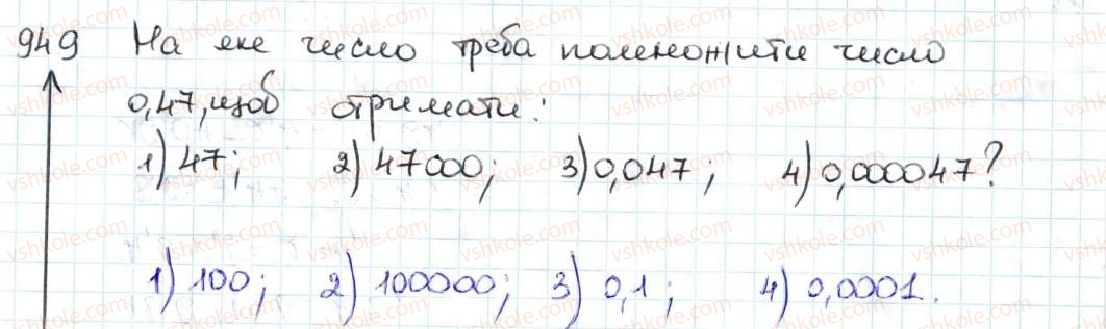 949 На яке число треба помножити число
0,47, щоб отримати:
1) 47; 2) 47000; 3) 0,047; 4) 0,000047?
1) 100; 2) 100000; 3) 0,1; 4) 0,0001.